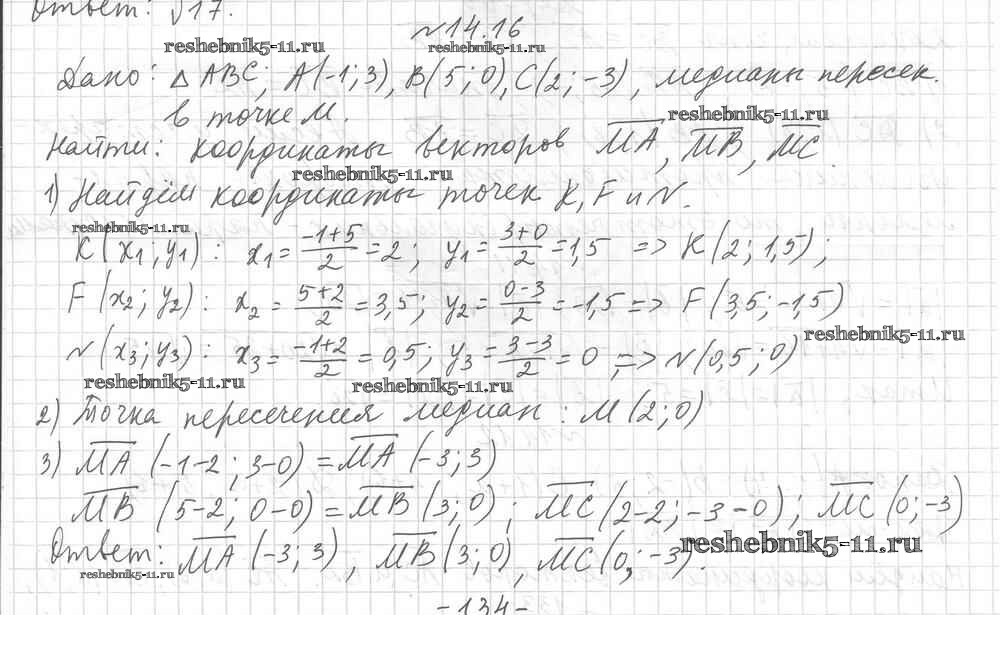 Ответ: √17.
№14.16
reshebnik5-11.ru reshebnik5-11.ru
Дано: △ ABC; A(-1; 3), B(5; 0), C(2; -3), медианы пересек.
в точке M. reshebnik5-11.ru
Найти: координаты векторов MA, MB, MC
reshebnik5-11.ru
1) Найдём координаты точек K, F и N.
reshebnik5-11.ru
K(x₁; y₁): x₁ = (-1+5)/2 = 2; y₁ = (3+0)/2 = 1,5 => K(2; 1,5);
F(x₂; y₂): x₂ = (5+2)/2 = 3,5; y₂ = (0-3)/2 = -1,5 => F(3,5; -1,5)
reshebnik5-11.ru
N(x₃; y₃): x₃ = (-1+2)/2 = 0,5; y₃ = (3-3)/2 = 0; => N(0,5; 0)
reshebnik5-11.ru reshebnik5-11.ru
2) Точка пересечения медиан: M(2; 0)
3) MA(-1-2; 3-0) = MA(-3; 3)
MB(5-2; 0-0) = MB(3; 0); MC(2-2; -3-0); MC(0; -3)
Ответ: MA(-3; 3), MB(3; 0), MC(0; -3). reshebnik5-11.ru
reshebnik5-11.ru
-134-